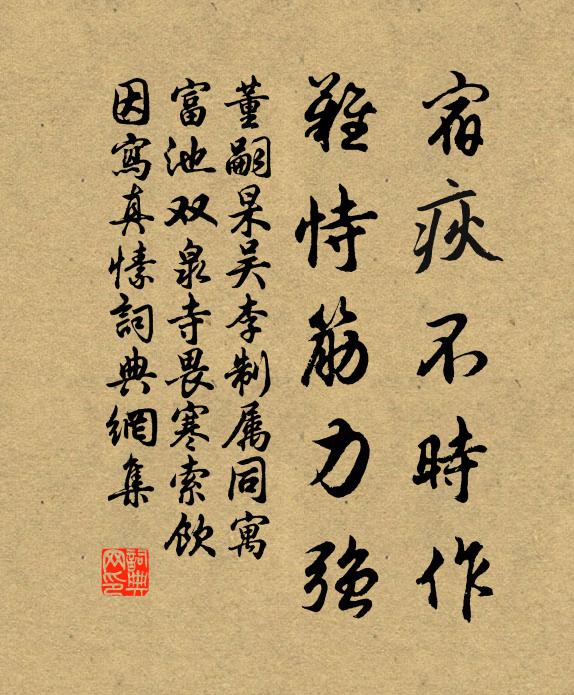 宿疢不時作
難恃筋力强
董嗣杲吴李制属同寓
富池双泉寺畏寒索飲
因寫真愫詞典網集
詞典网印